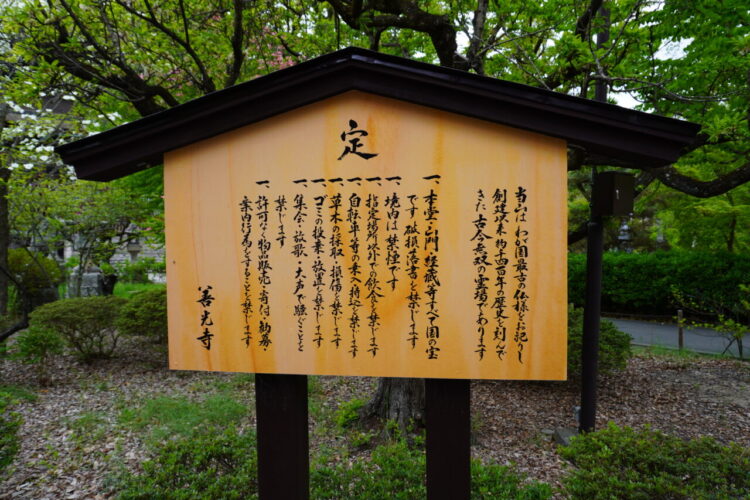 定
当山は わが国最古の仏様をお祀りし
創建以来 約千四百年の歴史を刻んで
きた 古今無双の霊場であります
一、本堂・三門・経蔵等すべて国の宝
です 破損・落書を禁じます
一、境内は禁煙です
一、指定場所以外での飲食を禁じます
一、自転車等の乗入・持込を禁じます
一、草木の採取・損傷を禁じます
一、ゴミの投棄・放置を禁じます
一、集会・放歌・大声で騒ぐことを
禁じます
一、許可なく物品販売・寄付・勧募・
案内行為をすることを禁じます
善光寺